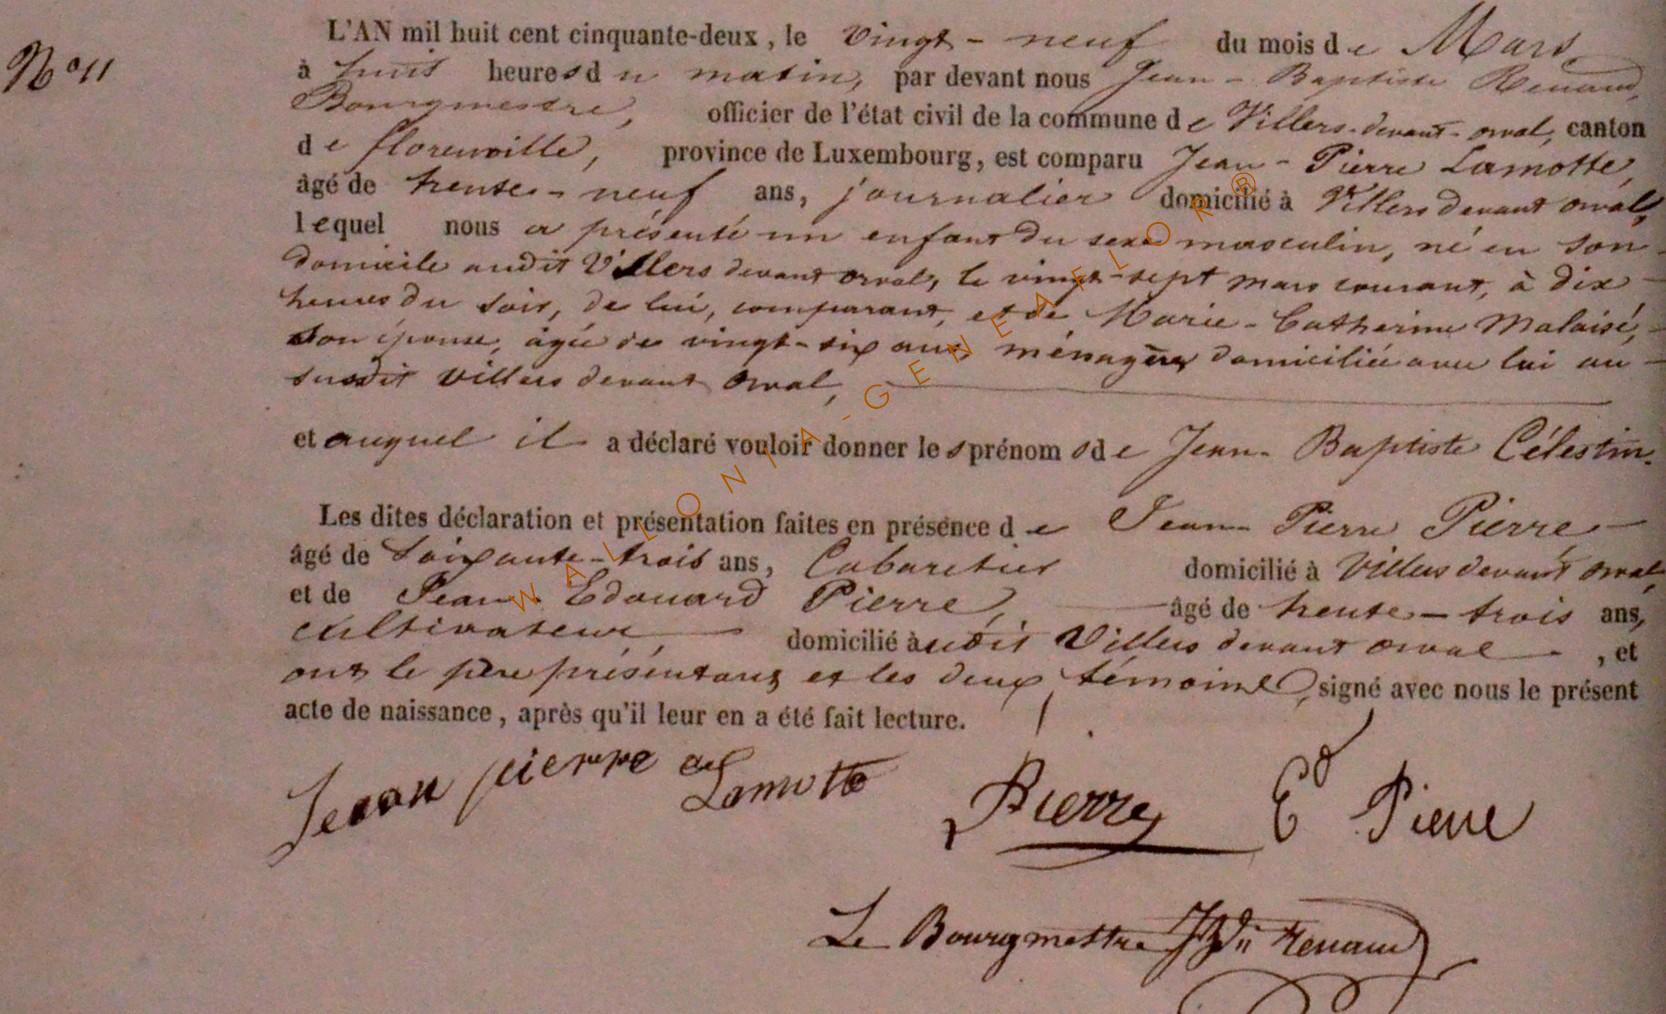 N° 11
L'AN mil huit cent cinquante-deux, le vingt-neuf du mois de Mars,
à huit heures du matin, par devant nous Jean-Baptiste Renaud,
Bourgmestre, officier de l'état civil de la commune de Villers-devant-orval, canton
de florenville, province de Luxembourg, est comparu Jean-Pierre Lamotte,
âgé de trente-neuf ans, journalier domicilié à Villers devant orval,
lequel nous a présenté un enfant du sexe masculin, né en son
domicile audit Villers devant orval, le vingt-sept mars courant, à dix
heures du soir, de lui, comparant, et de Marie-Catherine Malaisé,
son épouse, âgée de vingt-six ans ménagère domiciliée avec lui au
susdit Villers devant Orval,
et auquel il a déclaré vouloir donner les prénoms de Jean-Baptiste Célestin.
Les dites déclaration et présentation faites en présence de Jean Pierre Pierre
âgé de Soixante-trois ans, Cabaretier domicilié à Villers devant orval
et de Jean Edouard Pierre, âgé de trente-trois ans,
cultivateur, domicilié audit Villers devant orval, et
ont le père présentant et les deux témoins, signé avec nous le présent
acte de naissance, après qu'il leur en a été fait lecture.
Jean pierre Lamotte Pierre Ed Pierre
Le Bourgmestre JBte Renaud
WALLONIA-GENEAFLOR®